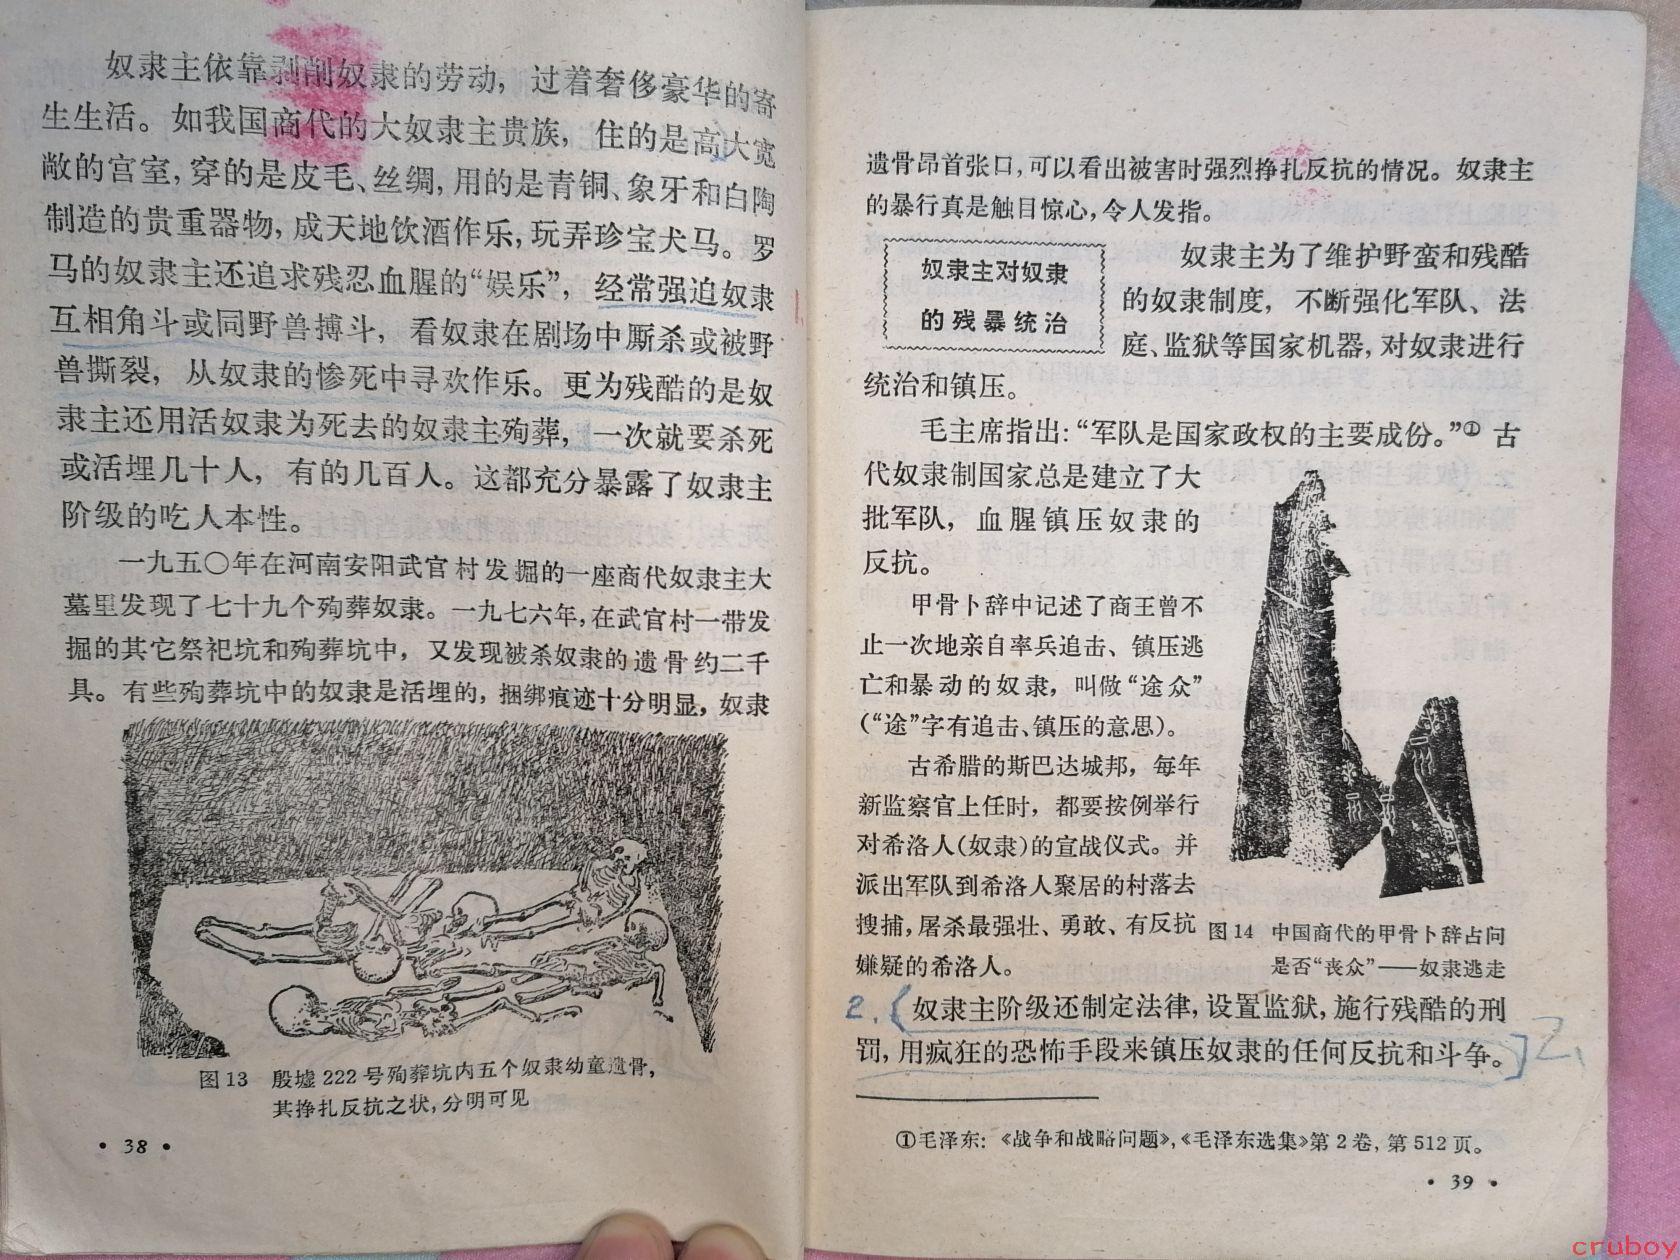 奴隶主依靠剥削奴隶的劳动，过着奢侈豪华的寄
生生活。如我国商代的大奴隶主贵族，住的是高大宽
敞的宫室，穿的是皮毛、丝绸，用的是青铜、象牙和白陶
制造的贵重器物，成天地饮酒作乐，玩弄珍宝犬马。罗
马的奴隶主还追求残忍血腥的“娱乐”，经常强迫奴隶
互相角斗或同野兽搏斗，看奴隶在剧场中厮杀或被野
兽撕裂，从奴隶的惨死中寻欢作乐。更为残酷的是奴
隶主还用活奴隶为死去的奴隶主殉葬，一次就要杀死
或活埋几十人，有的几百人。这都充分暴露了奴隶主
阶级的吃人本性。
一九五〇年在河南安阳武官村发掘的一座商代奴隶主大
墓里发现了七十九个殉葬奴隶。一九七六年，在武官村一带发
掘的其它祭祀坑和殉葬坑中，又发现被杀奴隶的遗骨约二千
具。有些殉葬坑中的奴隶是活埋的，捆绑痕迹十分明显，奴隶
图13 殷墟222号殉葬坑内五个奴隶幼童遗骨，
其挣扎反抗之状，分明可见
· 38 ·
遗骨昂首张口，可以看出被害时强烈挣扎反抗的情况。奴隶主
的暴行真是触目惊心，令人发指。
奴隶主对奴隶
的残暴统治
奴隶主为了维护野蛮和残酷
的奴隶制度，不断强化军队、法
庭、监狱等国家机器，对奴隶进行
统治和镇压。
毛主席指出：“军队是国家政权的主要成份。”① 古
代奴隶制国家总是建立了大
批军队，血腥镇压奴隶的
反抗。
甲骨卜辞中记述了商王曾不
止一次地亲自率兵追击、镇压逃
亡和暴动的奴隶，叫做“途众”
（“途”字有追击、镇压的意思）。
古希腊的斯巴达城邦，每年
新监察官上任时，都要按例举行
对希洛人（奴隶）的宣战仪式。并
派出军队到希洛人聚居的村落去
搜捕，屠杀最强壮、勇敢、有反抗
嫌疑的希洛人。
图14 中国商代的甲骨卜辞占问
是否“丧众”——奴隶逃走
2.{奴隶主阶级还制定法律，设置监狱，施行残酷的刑
罚，用疯狂的恐怖手段来镇压奴隶的任何反抗和斗争。]2.
①毛泽东：《战争和战略问题》，《毛泽东选集》第2卷，第512页。
· 39 ·
cruboy